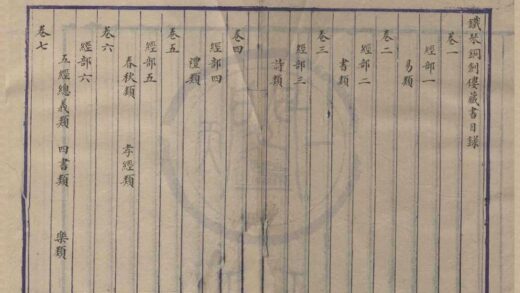 鐵琴銅劍樓藏書目錄
卷一
經部一
易類
卷二
經部二
書類
卷三
經部三
詩類
卷四
經部四
禮類
卷五
經部五
春秋類 孝經類
卷六
經部六
五經總義類 四書類 樂類
卷七